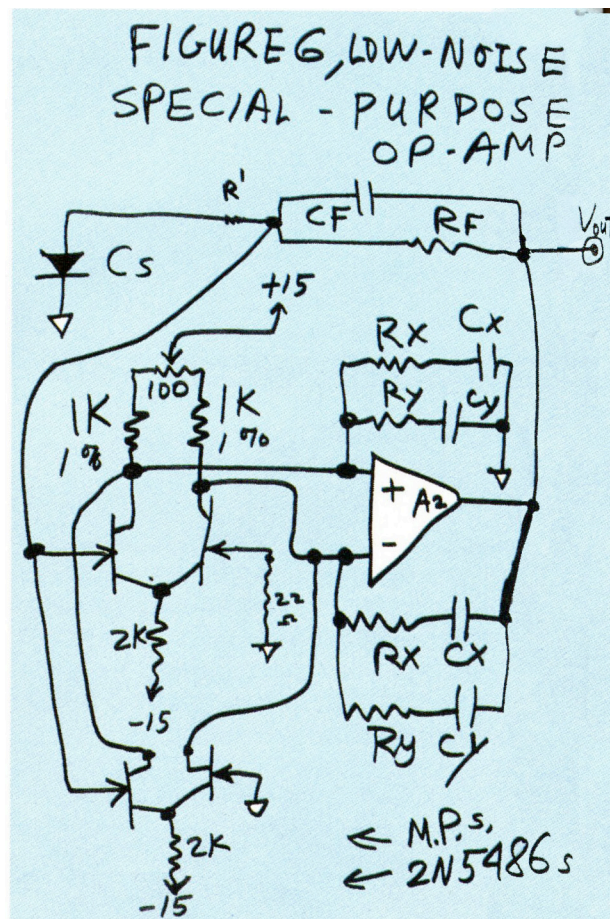 FIGURE 6, LOW-NOISE
SPECIAL - PURPOSE
OP-AMP
R'
CF
RF
VOUT
Cs
+15
Rx Cx
100
1K 1K
Ry Cy
1% 1%
+
A2
-
22
Ω
2K
Rx Cx
-15
Ry Cy
2K
← M.P.s.
← 2N5486s
-15